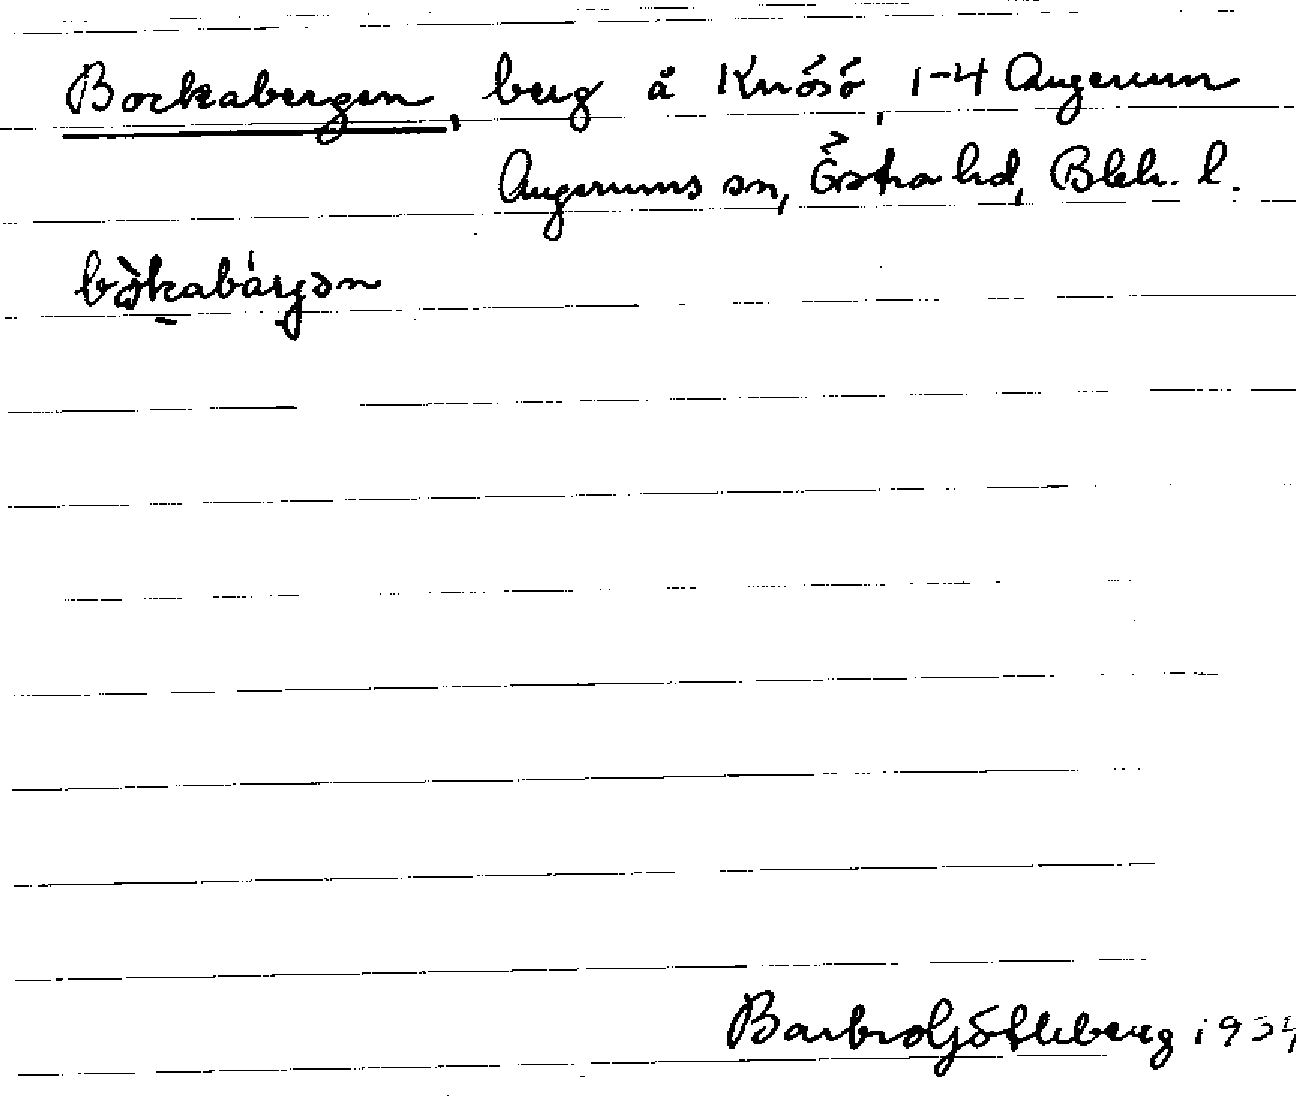 Bockabergen, berg å Knösö, 1-4 Augerum
Augerums sn, Östra hd, Blek. l.
bòkabárjən
Barbro Götleberg 193